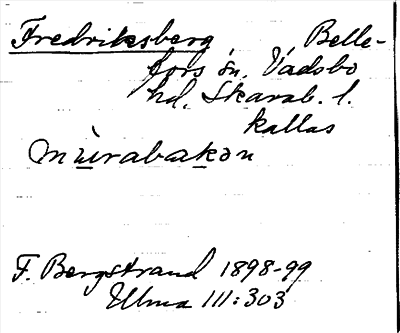 Fredriksberg Belle-
fors sn, Vadsbo
hd, Skarab. l.
kallas
mùrabakən
F. Bergstrand 1898-99
Ulma 111:303